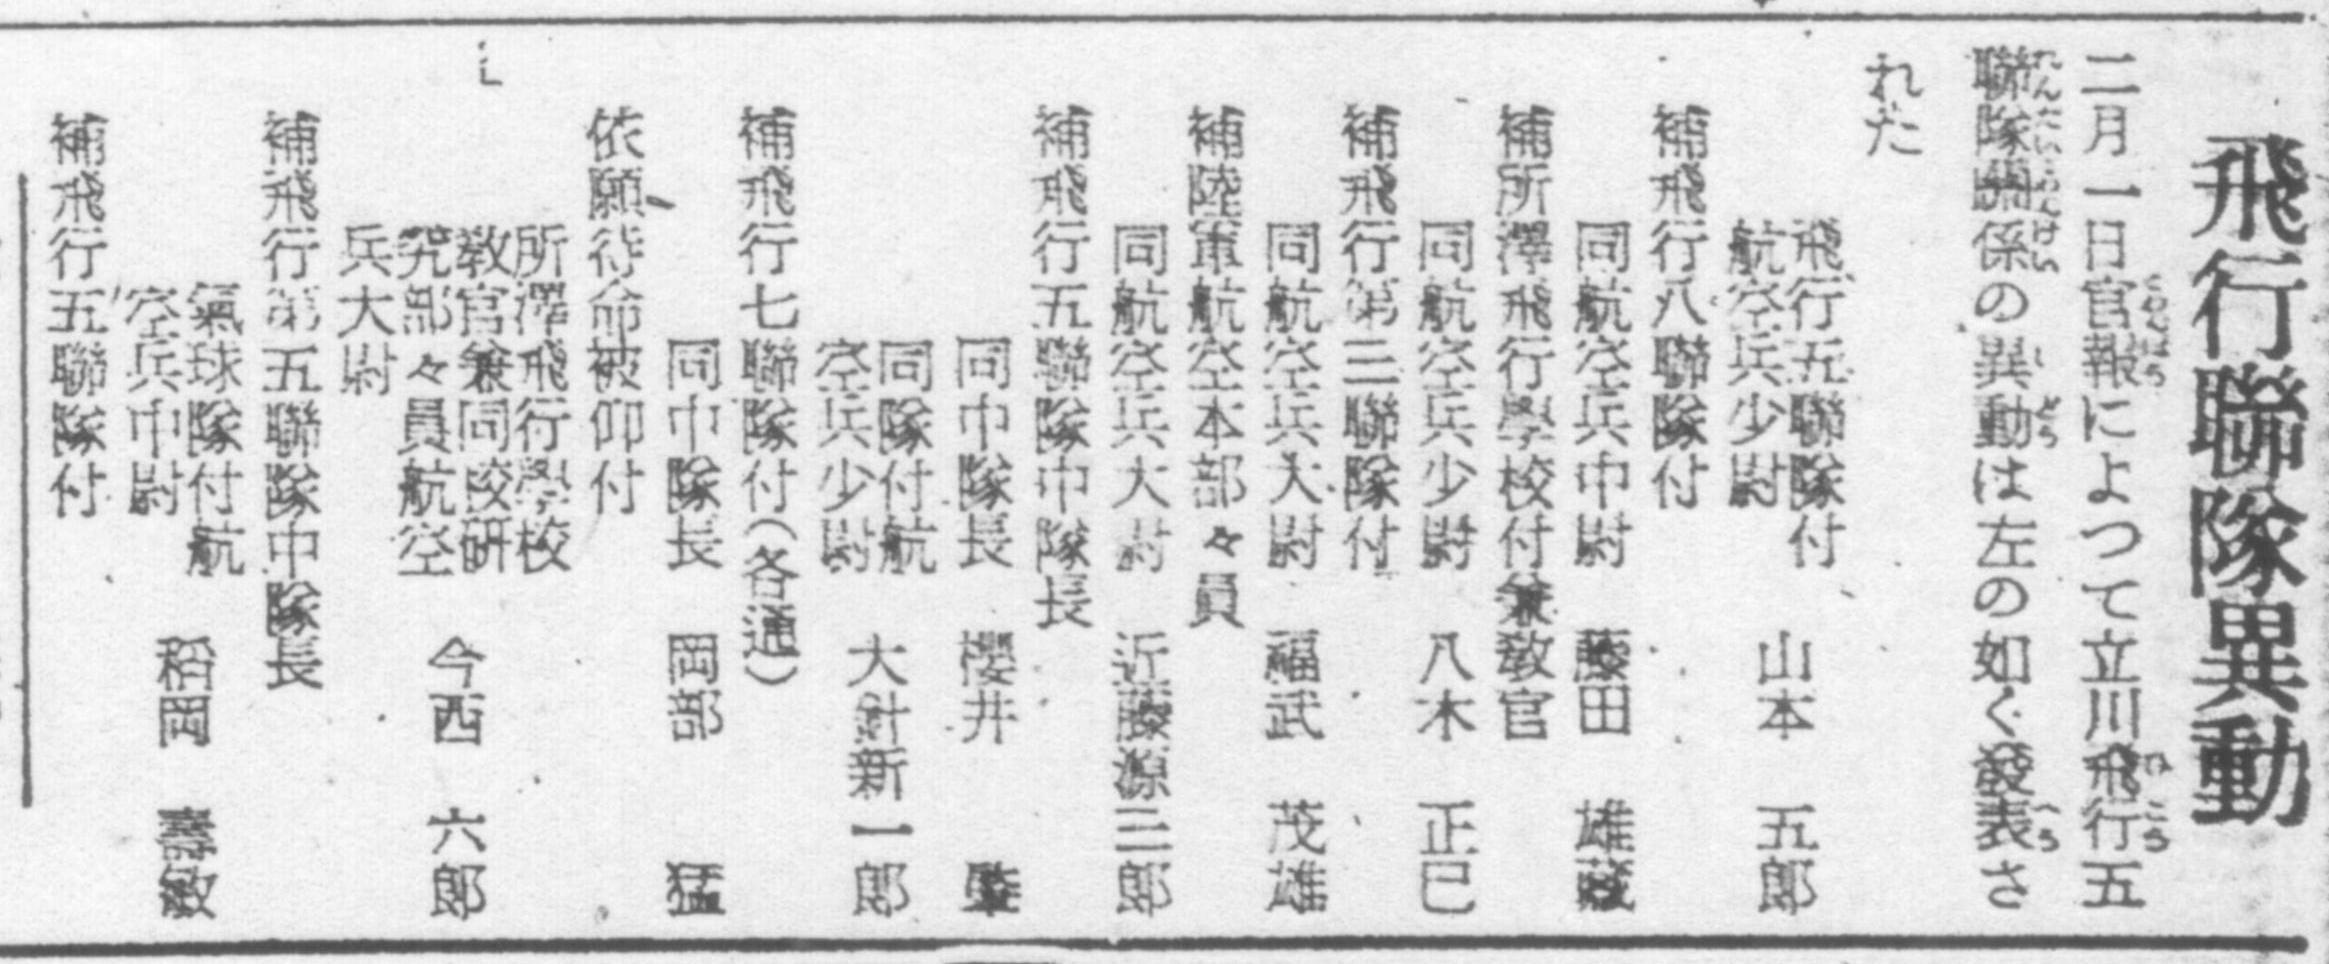 飛行聯隊異動
二月一日官報によつて立川飛行五
聯隊關係の異動は左の如く發表さ
れた
飛行五聯隊付
航空兵少尉 山本 五郎
補飛行八聯隊付
同航空兵中尉 藤田 雄藏
補所澤飛行學校付兼教官
同航空兵少尉 八木 正巳
補飛行第三聯隊付
同航空兵大尉 福武 茂雄
補陸軍航空本部々員
同航空兵大尉 近藤源三郎
補飛行五聯隊中隊長
同中隊長 櫻井
同隊付航
空兵少尉 大針新一郎
補飛行七聯隊付（各通）
同中隊長 岡部 猛
依願待命被仰付
所澤飛行學校
教官兼同校研
究部々員航空
兵大尉 今西 六郎
補飛行第五聯隊中隊長
氣球隊付航
空兵中尉 稻岡 壽敏
補飛行五聯隊付